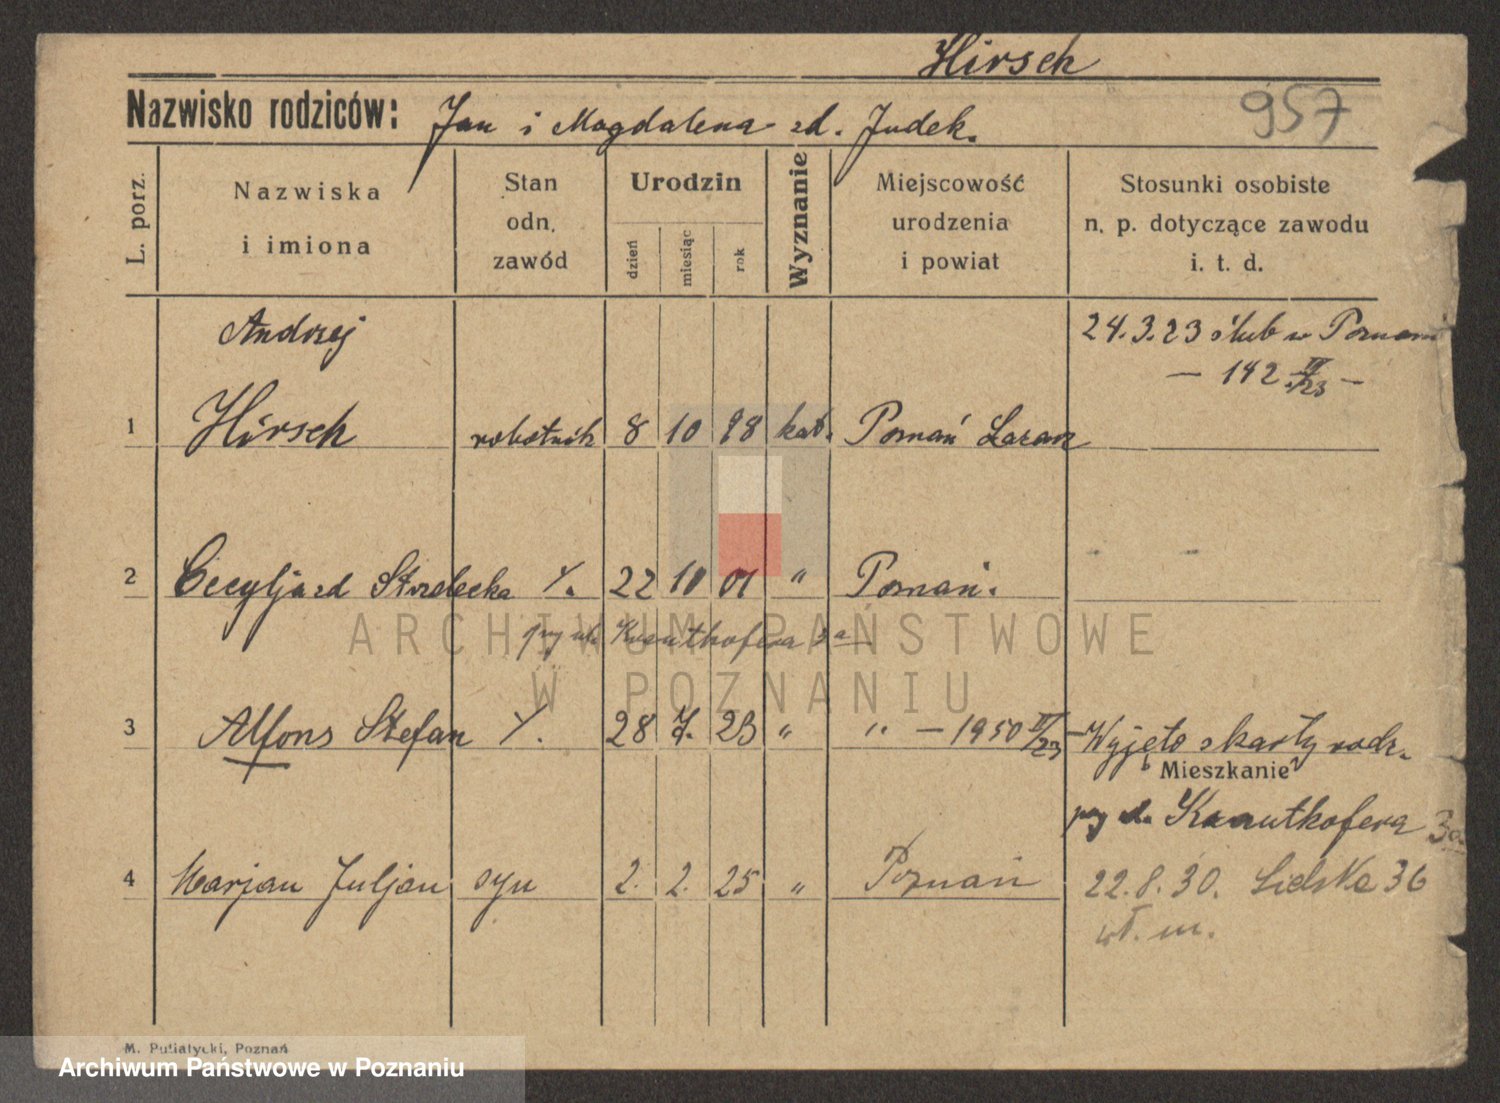 Hirsch
Nazwisko rodziców: Jan i Magdalena zd. Judek.
957
L. porz.
Nazwiska i imiona
Stan odn. zawód
Urodzin
dzień
miesiąc
rok
Wyznanie
Miejscowość urodzenia i powiat
Stosunki osobiste n. p. dotyczące zawodu i. t. d.
24.3.23 ślub w Poznaniu
— 142 III/23 —
Andrzej
1 Hirsch robotnik 8 10 98 kat. Poznań Łazarz
2 Cecylja zd Strzelecka ż. 22 10 01 " Poznań.
przy ul. Krauthofera 3a
3 Alfons Stefan 28 7. 23 " " — 1950 23 — Wyjęto z karty rodz.
Mieszkanie
Krauthofera 3a
4 Marjan Juljan syn 2. 2. 25 " Poznań
22.8.30. 36
wł. m.
M. Putiatycki, Poznań
ARCHIWUM PAŃSTWOWE
W POZNANIU
Archiwum Państwowe w Poznaniu